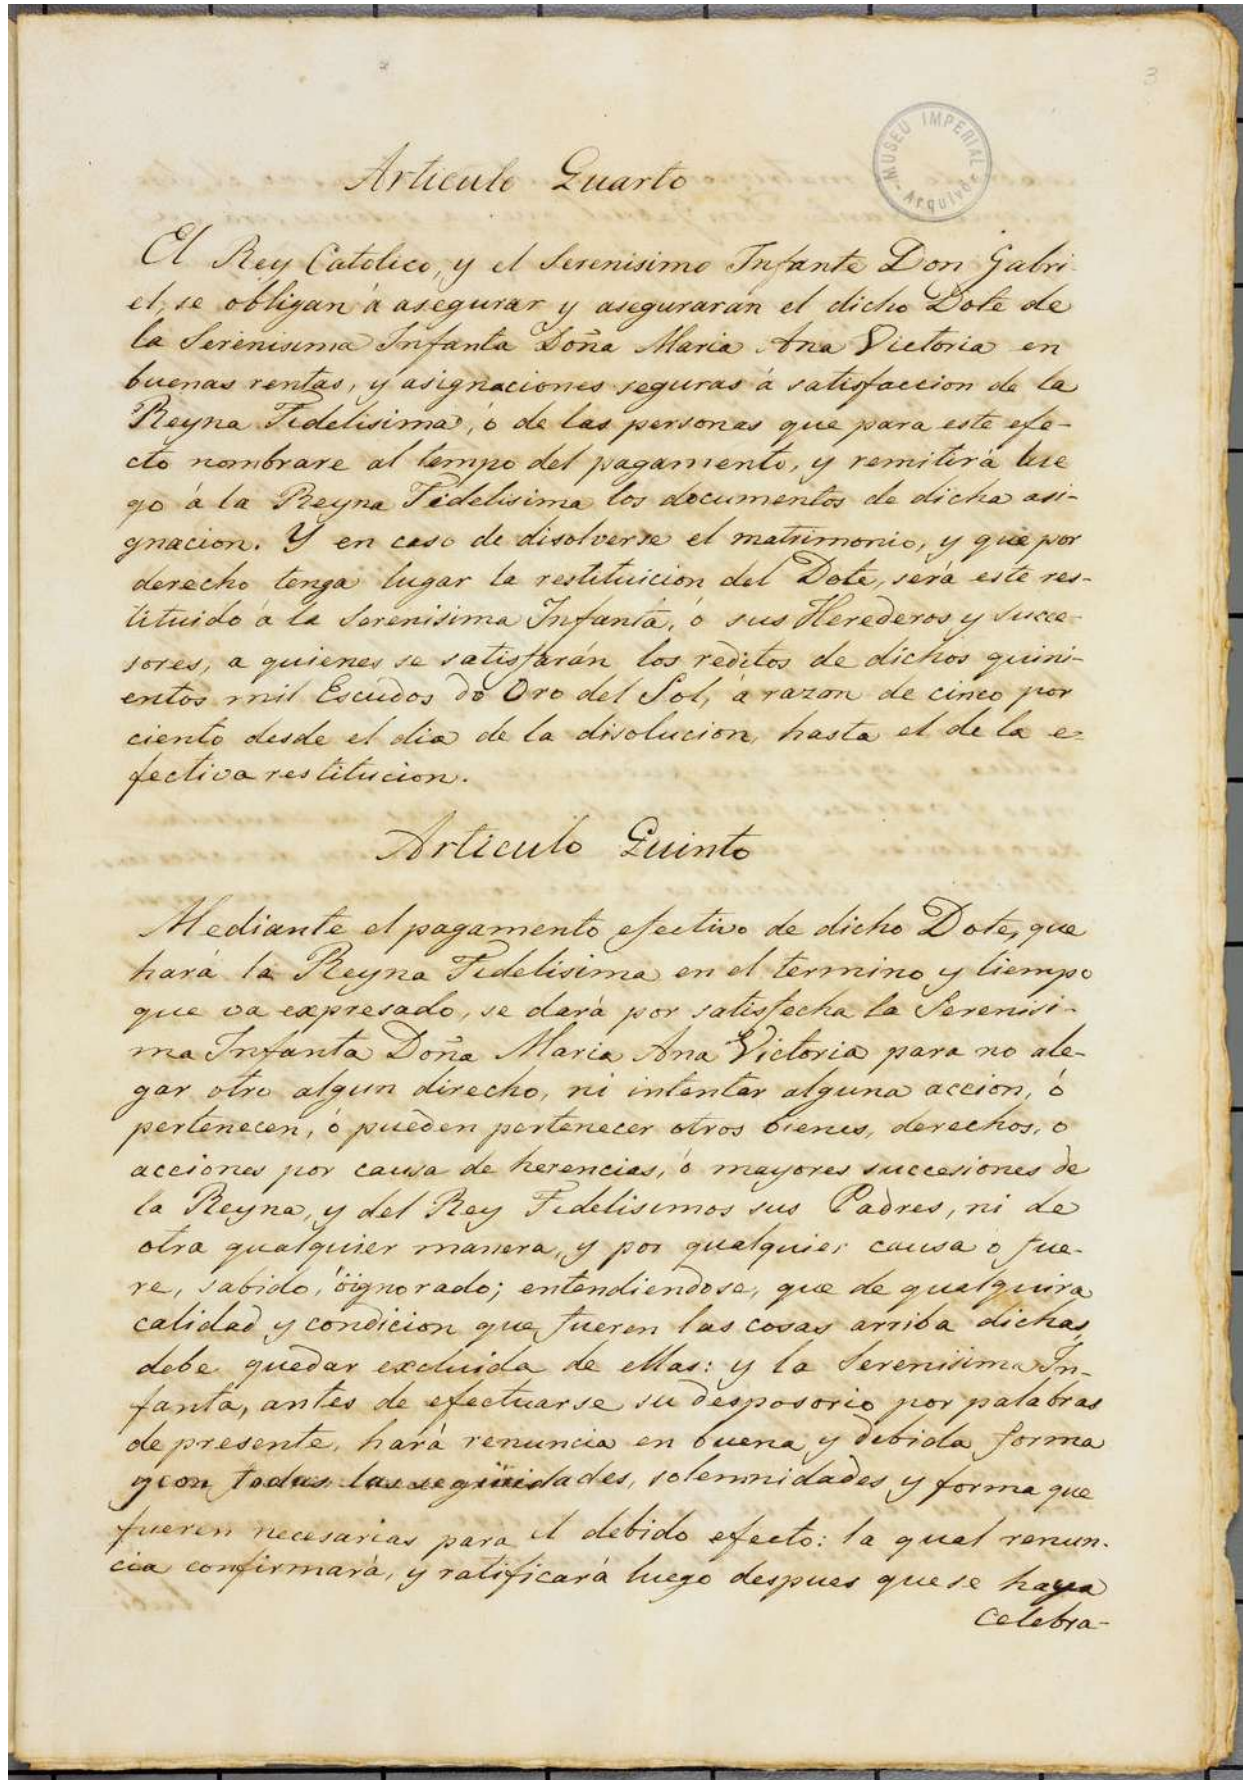 3
MUSEU IMPERIAL
Arquivo
Articulo Quarto
El Rey Catolico, y el Serenisimo Infante Don Gabri-
el, se obligan á asegurar y asegurarán el dicho Dote de
la Serenisima Infanta Doña Maria Ana Victoria en
buenas rentas, y asignaciones seguras á satisfaccion de la
Reyna Fidelisima, ó de las personas que para este efe-
cto nombrare al tempo del pagamento, y remitirá lue
go á la Reyna Fidelisima los documentos de dicha asi-
gnacion. Y en caso de disolverse el matrimonio, y que por
derecho tenga lugar la restituicion del Dote, será este res-
tituido á la Serenisima Infanta, ó sus Herederos y Succe-
sores, a quienes se satisfarán los reditos de dichos quini-
entos mil Escudos do Oro del Sol, á razon de cinco por
ciento desde el dia de la disolucion, hasta el de la e-
fectiva restitucion.
Articulo Quinto
Mediante el pagamento efectivo de dicho Dote, que
hará la Reyna Fidelisima en el termino y tiempo
que va expresado, se dará por satisfecha la Serenisi-
ma Infanta Doña Maria Ana Victoria para no ale-
gar otro algun direcho, ni intentar alguna accion, ó
pertenecen, ó pueden pertenecer otros bienes, derechos, o
acciones por causa de herencias, ó mayores successiones de
la Reyna, y del Rey Fidelisimos sus Padres, ni de
otra qualquier manera, y por qualquier causa o fue-
re, sabido, ó ignorado; entendiendose, que de qualquira
calidad y condicion que fueren las cosas arriba dichas,
debe quedar excluida de ellas: y la Serenisima In-
fanta, antes de efectuarse su desposorio por palabras
de presente, hará renuncia en buena y debida forma
y con todas las seguridades, solemnidades y forma que
fueren necesarias para el debido efecto: la qual renun-
cia confirmará, y ratificará luego despues que se haya
celebra-